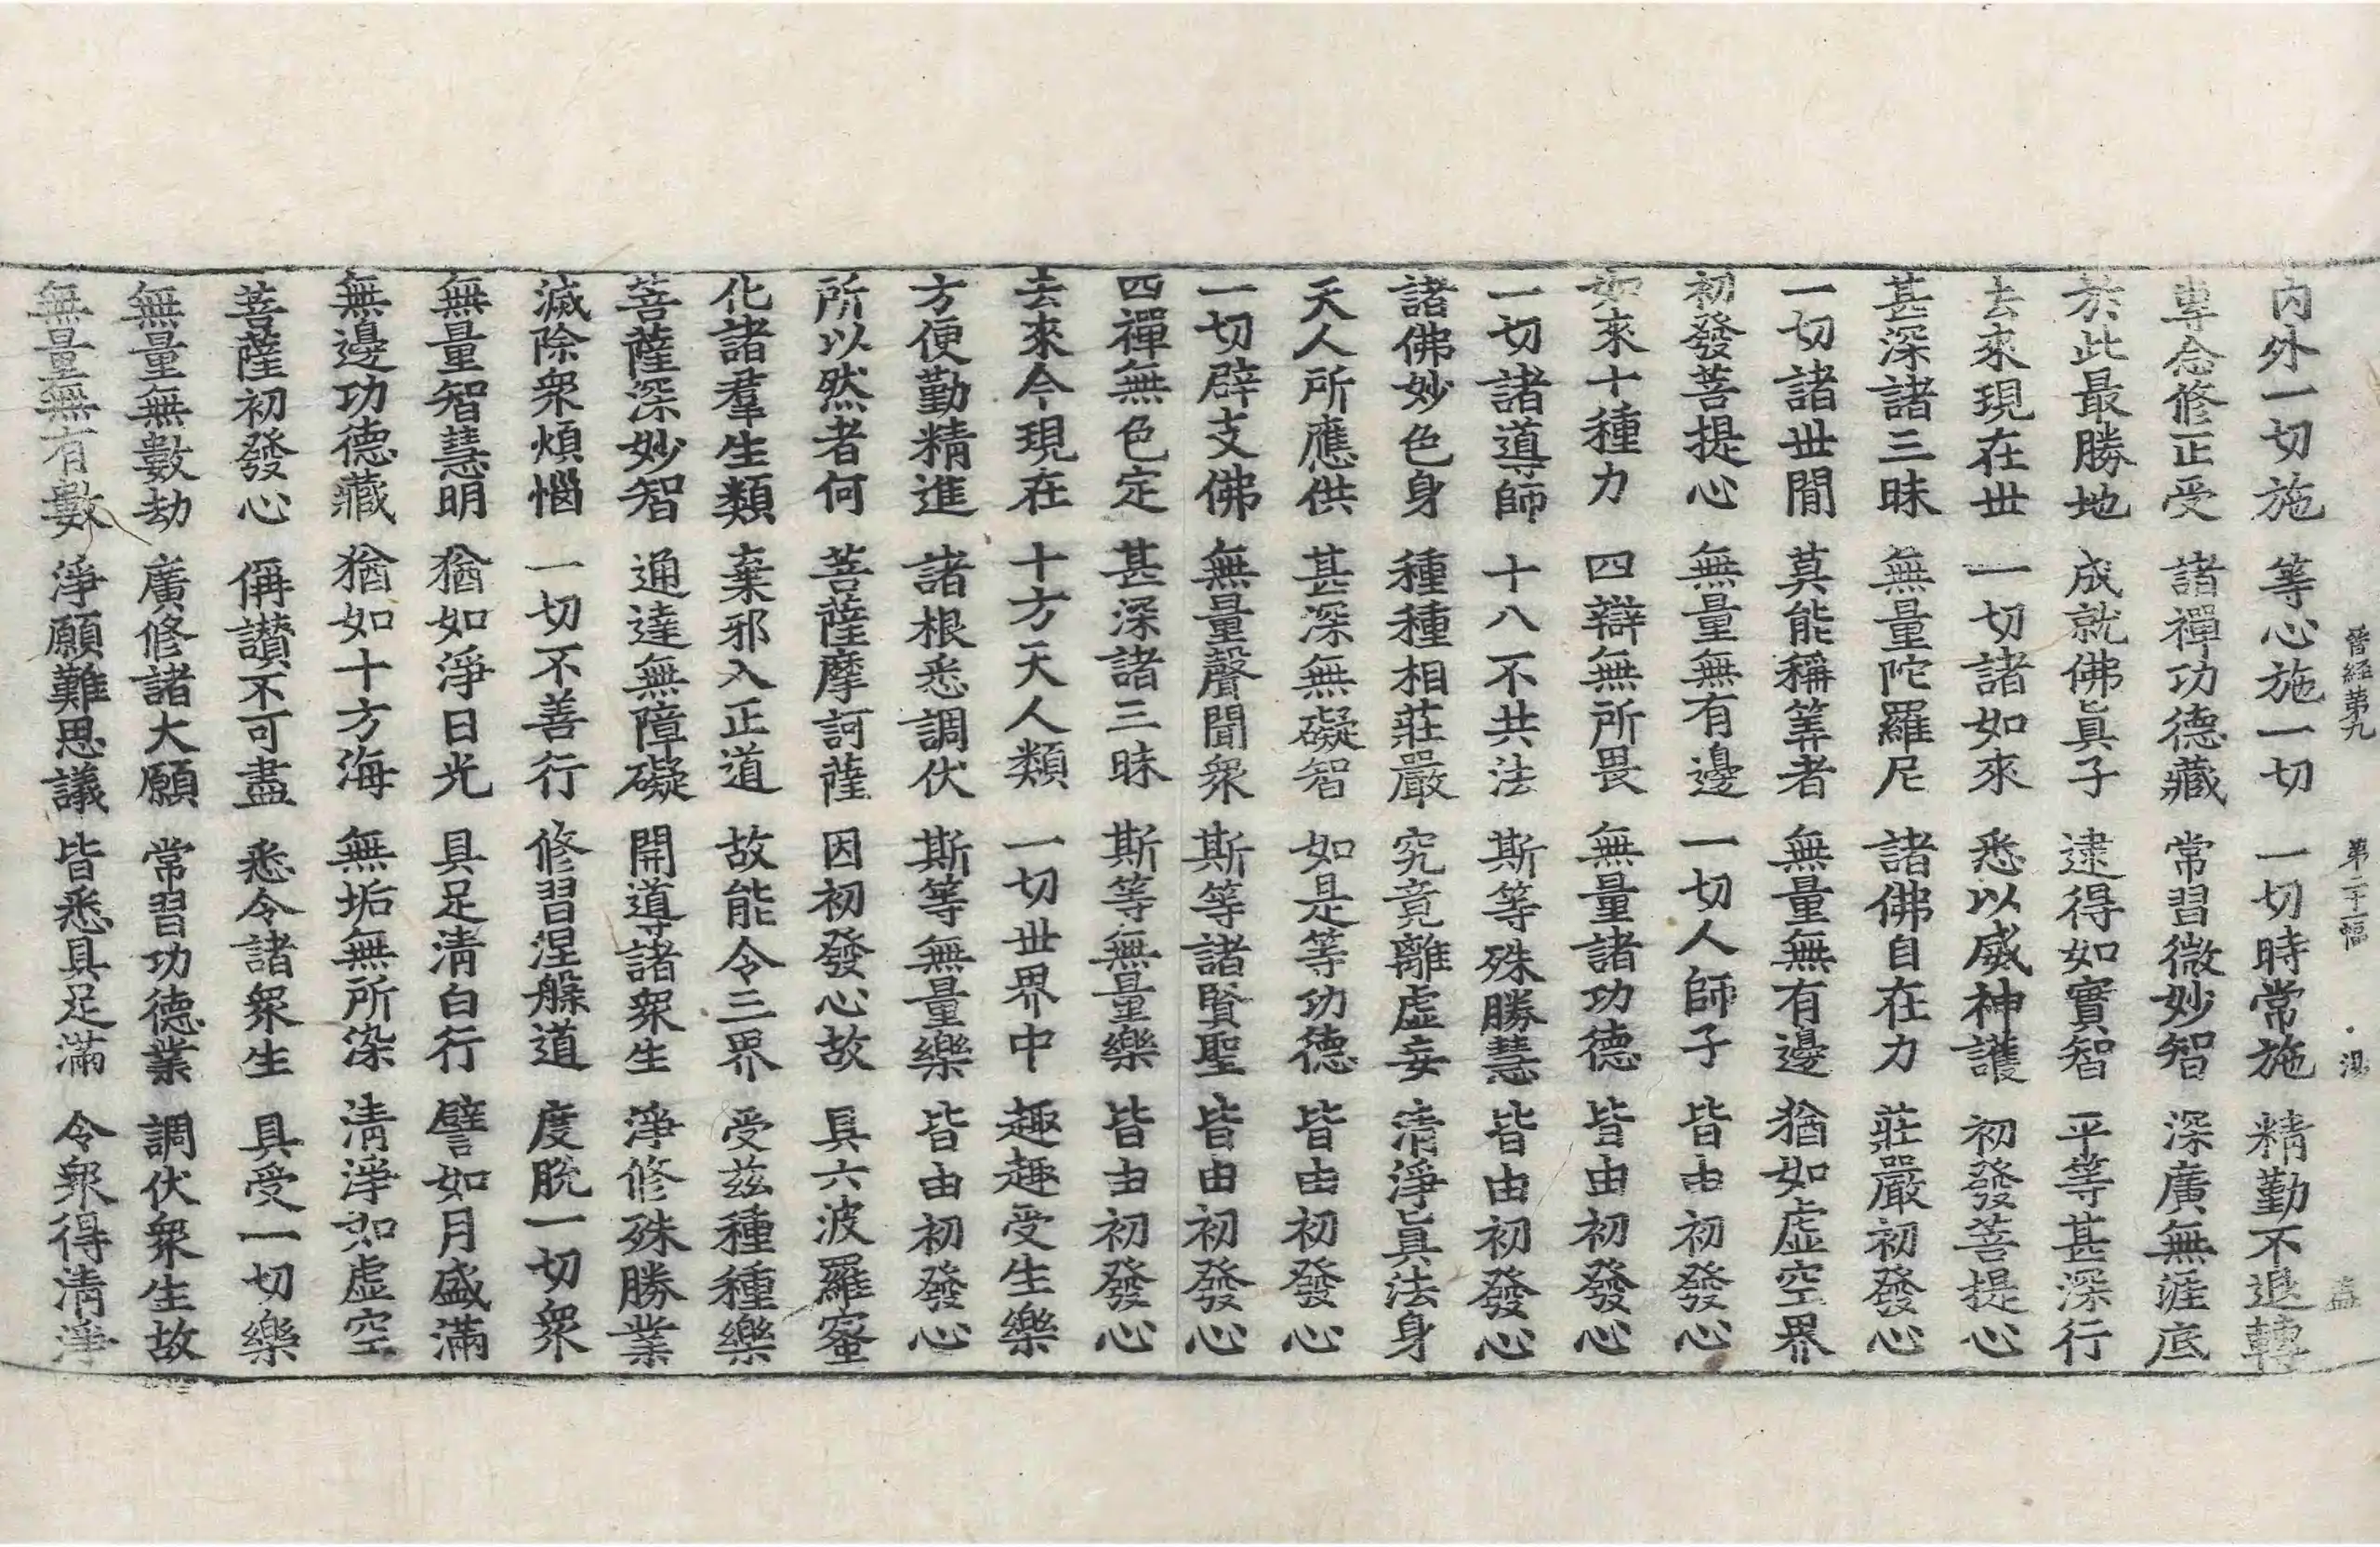 晉經第九 第二十二幅 湯 盖
内外一切施 等心施一切 一切時常施 精勤不退轉
專念修正受 諸禪功德藏 常習微妙智 深廣無涯底
於此最勝地 成就佛眞子 逮得如實智 平等甚深行
去來現在世 一切諸如來 悉以威神護 初發菩提心
甚深諸三昧 無量陀羅尼 諸佛自在力 莊嚴初發心
一切諸世閒 莫能稱筭者 無量無有邊 猶如虛空界
初發菩提心 無量無有邊 一切人師子 皆由初發心
如來十種力 四辯無所畏 無量諸功德 皆由初發心
一切諸導師 十八不共法 斯等殊勝慧 皆由初發心
諸佛妙色身 種種相莊嚴 究竟離虛妄 清淨眞法身
天人所應供 甚深無礙智 如是等功德 皆由初發心
一切辟支佛 無量聲聞衆 斯等諸賢聖 皆由初發心
四禪無色定 甚深諸三昧 斯等無量樂 皆由初發心
去來今現在 十方天人類 一切世界中 趣趣受生樂
方便勤精進 諸根悉調伏 斯等無量樂 皆由初發心
所以然者何 菩薩摩訶薩 因初發心故 具六波羅蜜
化諸羣生類 棄邪入正道 故能令三界 受兹種種樂
菩薩深妙智 通達無障礙 開導諸衆生 淨修殊勝業
滅除衆煩惱 一切不善行 修習涅槃道 度脫一切衆
無量智慧明 猶如淨日光 具足清白行 譬如月盛滿
無邊功德藏 猶如十方海 無垢無所染 清淨如虛空
菩薩初發心 偁讃不可盡 悉令諸衆生 具受一切樂
無量無數劫 廣修諸大願 常習功德業 調伏衆生故
無量無有數 淨願難思議 皆悉具足滿 令衆得清淨